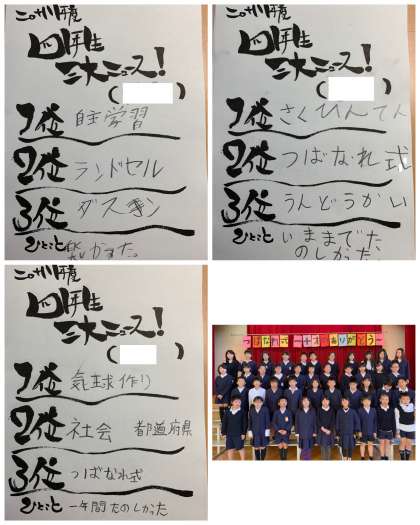 四年生
三大ニュース!
( )
1位 自主学習
2位 ランドセル
3位 ダスキン
ひとこと
四年生
三大ニュース!
( )
1位 さくひんてん
2位 つばなれ式
3位 うんどうかい
ひとこと いままでた
のしかった。
四年生
三大ニュース!
( )
1位 気球作り
2位 社会 都道府県
3位 つばなれ式
ひとこと 一年間たのしかった
ありがとう